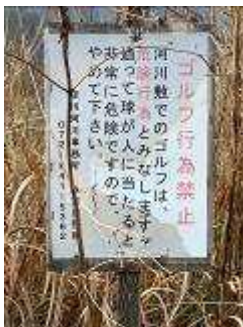 ゴルフ行為禁止
河川敷でのゴルフは、
危険行為とみなします。
誤って球が人に当たると
非常に危険ですので、
やめて下さい。